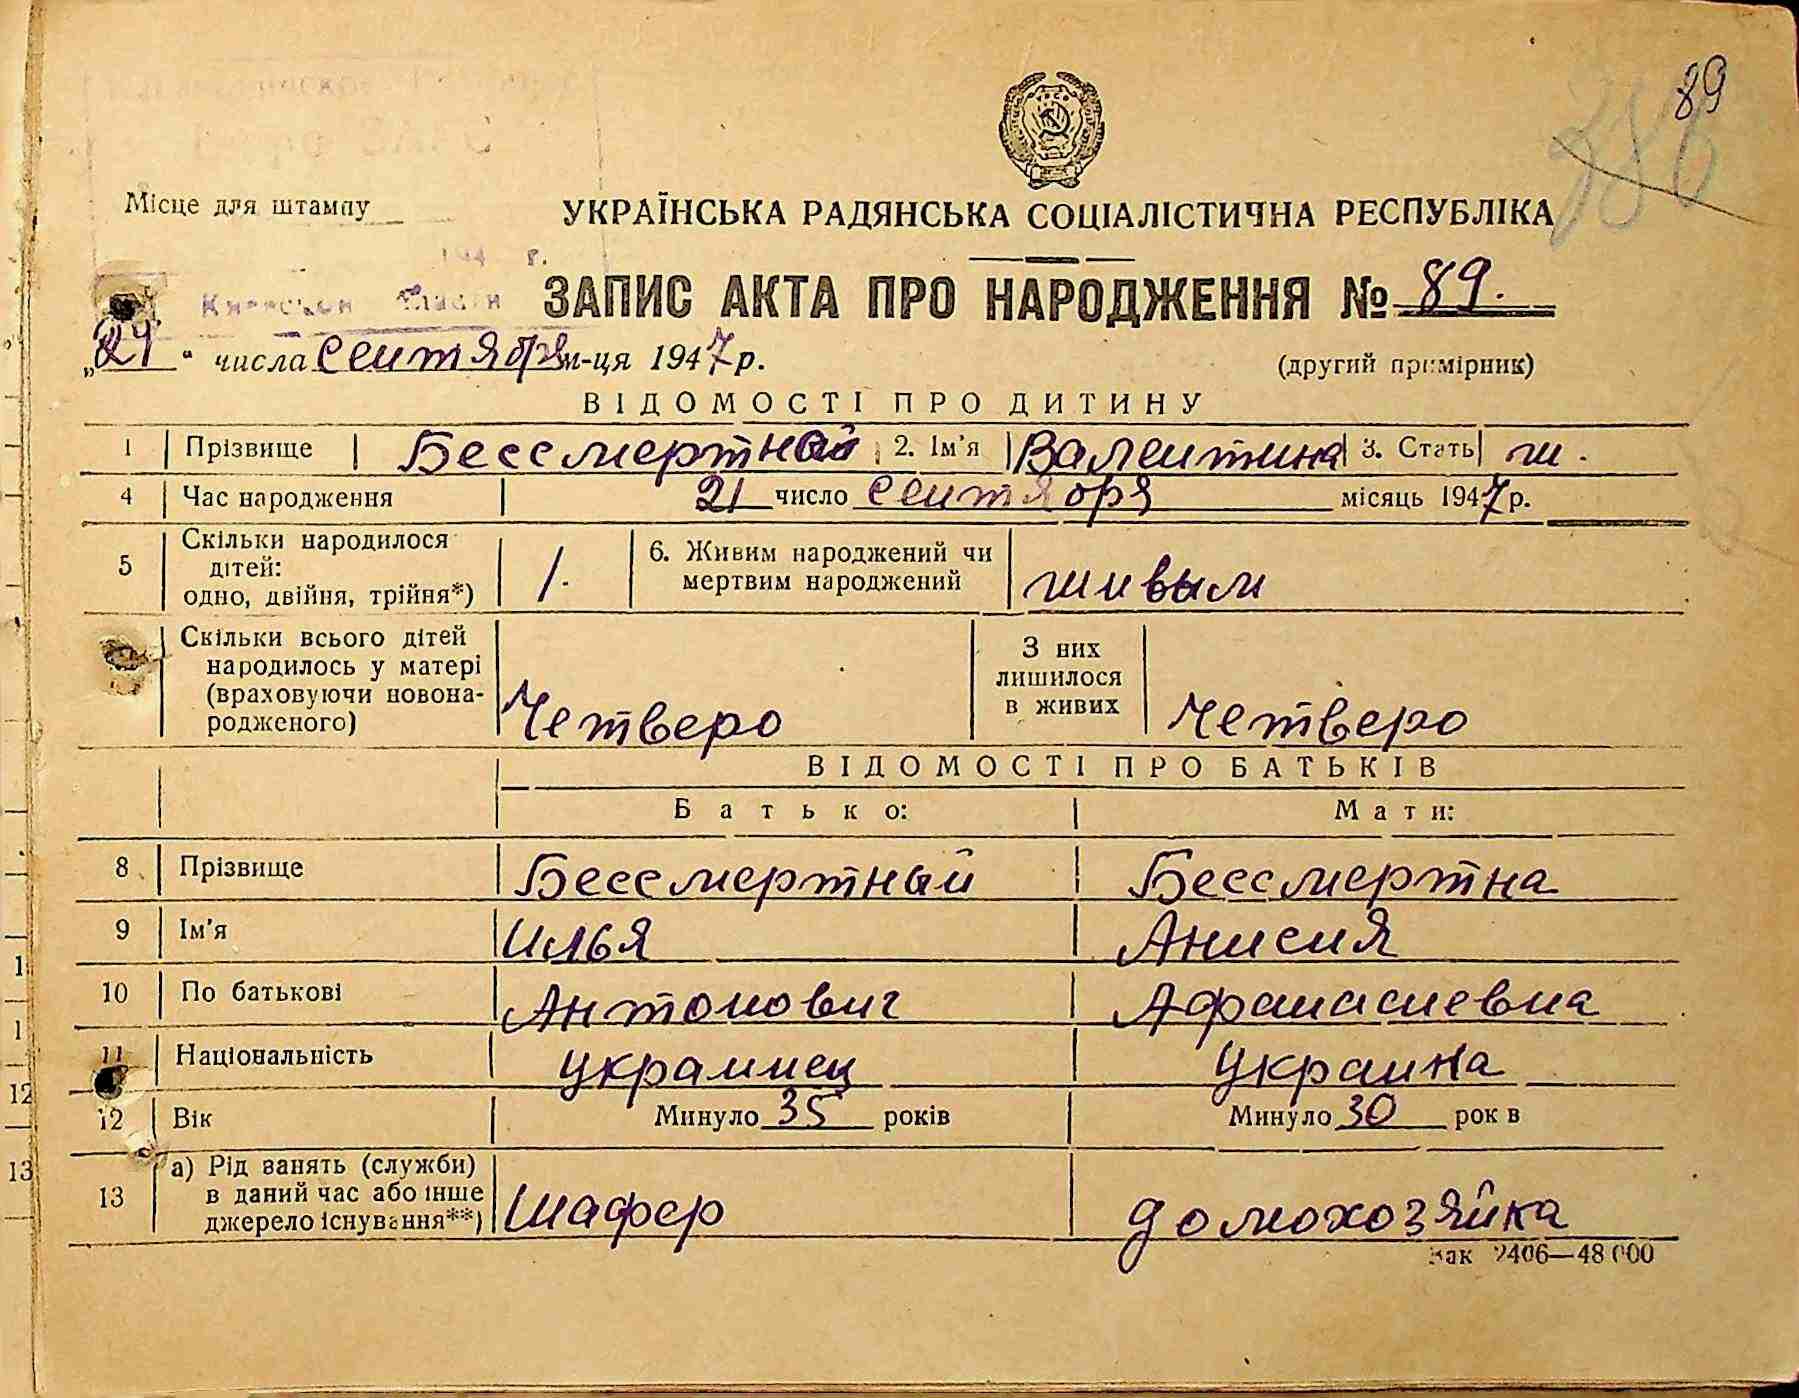 89
386
Місце для штампу
УКРАЇНСЬКА РАДЯНСЬКА СОЦІАЛІСТИЧНА РЕСПУБЛІКА
194 г.
Киевской области
ЗАПИС АКТА ПРО НАРОДЖЕННЯ № 89.
„24“ числа сентября м-ця 1947 р.
(другий примірник)
ВІДОМОСТІ ПРО ДИТИНУ
1 Прізвище Бессмертная 2. Ім'я Валентина 3. Стать ж.
4 Час народження 21 число сентября місяць 1947 р.
5 Скільки народилося дітей: одно, двійня, трійня*) 1. 6. Живим народжений чи мертвим народжений живым
Скільки всього дітей народилось у матері (враховуючи новонародженого) Четверо З них лишилося в живих Четверо
ВІДОМОСТІ ПРО БАТЬКІВ
Батько: Мати:
8 Прізвище Бессмертный Бессмертна
9 Ім'я Илья Анисия
10 По батькові Антонович Афанасиевна
11 Національність украинец украина
12 Вік Минуло 35 років Минуло 30 рок в
13 а) Рід занять (служби) в даний час або інше джерело існування**) Шафер домохозяйка
Зак 2406—48 000